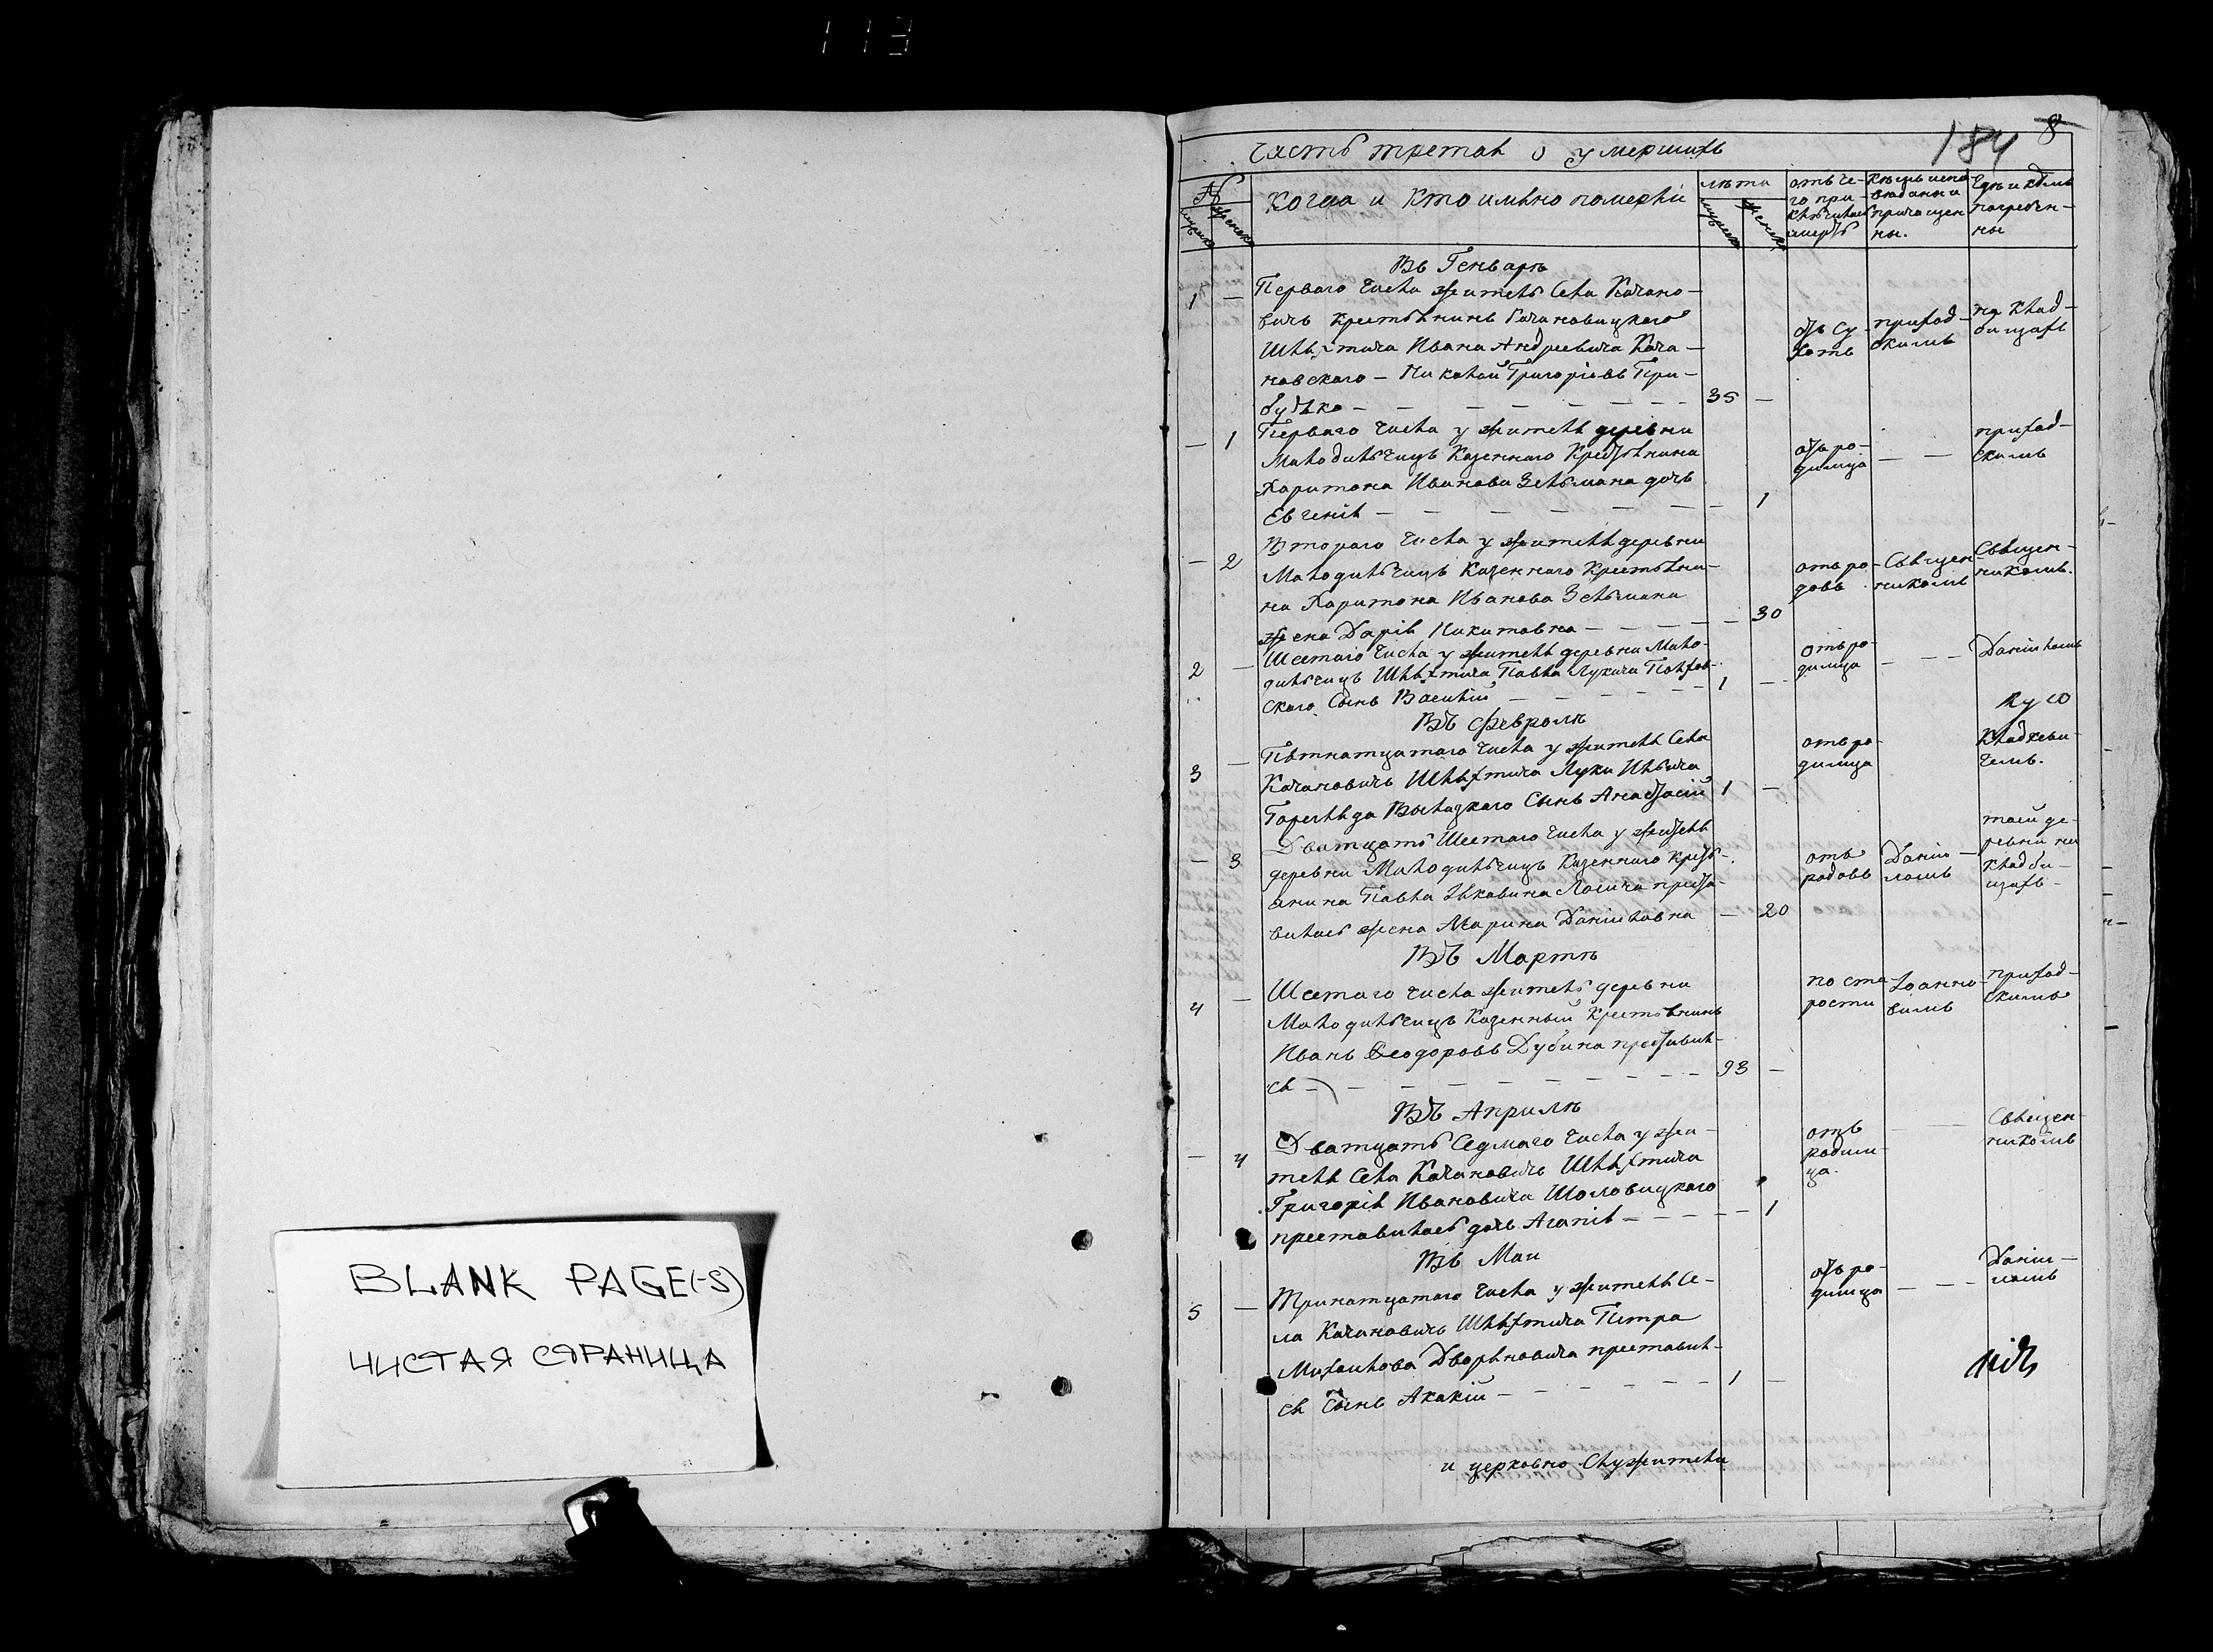 113
184 8
Часть третая о умершихъ
№
мужска
женска
Когда и кто имѣно померъ
лѣта
мужска
женска
отъ че-
го при-
ключилась
смерть
Кѣмъ испо
вѣданы и
причащен
ны.
Гдѣ и кѣмъ
погребен-
ны
Въ Генварѣ
1 —
Перваго числа житель села Качано-
вичъ крестьянинъ Качановицкого
Шляхтича Ивана Андреевича Кача-
новского — Николай Григоріевъ При-
будько — — — — — — 35 —
отъ су-
хотъ
приход-
скимъ
на клад-
бищахъ
— 1
Перваго числа у жителя деревни
Малодильчицъ Казенного Крестьянина
Харитона Иванова Зельмана дочь
Евгенія — — — — — — — 1
отъ ро-
димца
— —
приход-
скимъ
— 2
Втораго числа у жителя деревни
Малодильчицъ Казенного Крестьяни-
на Харитона Иванова Зельмана
жена Дарія Никитовна — — — — 30
отъ ро-
довъ
Священ-
никомъ
Священ-
никомъ.
2 —
Шестаго числа у жителя деревни Мало-
дильчицъ Шляхтича Павла Лукича
ского Сынъ Василій — — — — — 1 —
отъ ро-
димца
— — —
Даніиломъ
Въ Февролѣ
3 —
Пятнатцатаго числа у жителя Села
Качановичъ Шляхтича Луки Ильича
Горегляда Высоцкаго Сынъ Анастасій 1 —
отъ ро-
димца
— 3
Дватцать Шестаго числа у жителя
деревни Малодильчицъ Казенного кресть-
янина Павла Яковина преста-
вилась жена Марина Даніиловна — 20
отъ
родовъ
Даніи-
ломъ
той де-
ревни на
кладби-
щахъ —
Въ Мартѣ
4 —
Шестаго числа житель деревни
Малодильчицъ Казенный Крестьянинъ
Иванъ Ѳеодоровъ Дубина преставил-
ся — — — — — — — — 93 —
по ста-
рости
Іоанно-
вымъ
приход-
скимъ
Въ Априлѣ
— 4
Дватцать Седмаго числа у жи-
теля Села Качановичъ Шляхтича
Григорія Ивановича Шоловицкого
преставилась дочь Агапія — — — — 1
отъ
родим-
ца.
— —
Священ-
никомъ
Въ Маи
5 —
Тринатцатаго числа у жителя Се-
ла Качановичъ Шляхтича Петра
Михайлова Дворяновича преставил-
ся Сынъ Акакій — — — — — — 1 —
отъ ро-
димца
— — —
Даніи-
ломъ
и церковно Служители
BLANK PAGE(-S)
ЧИСТАЯ СТРАНИЦА